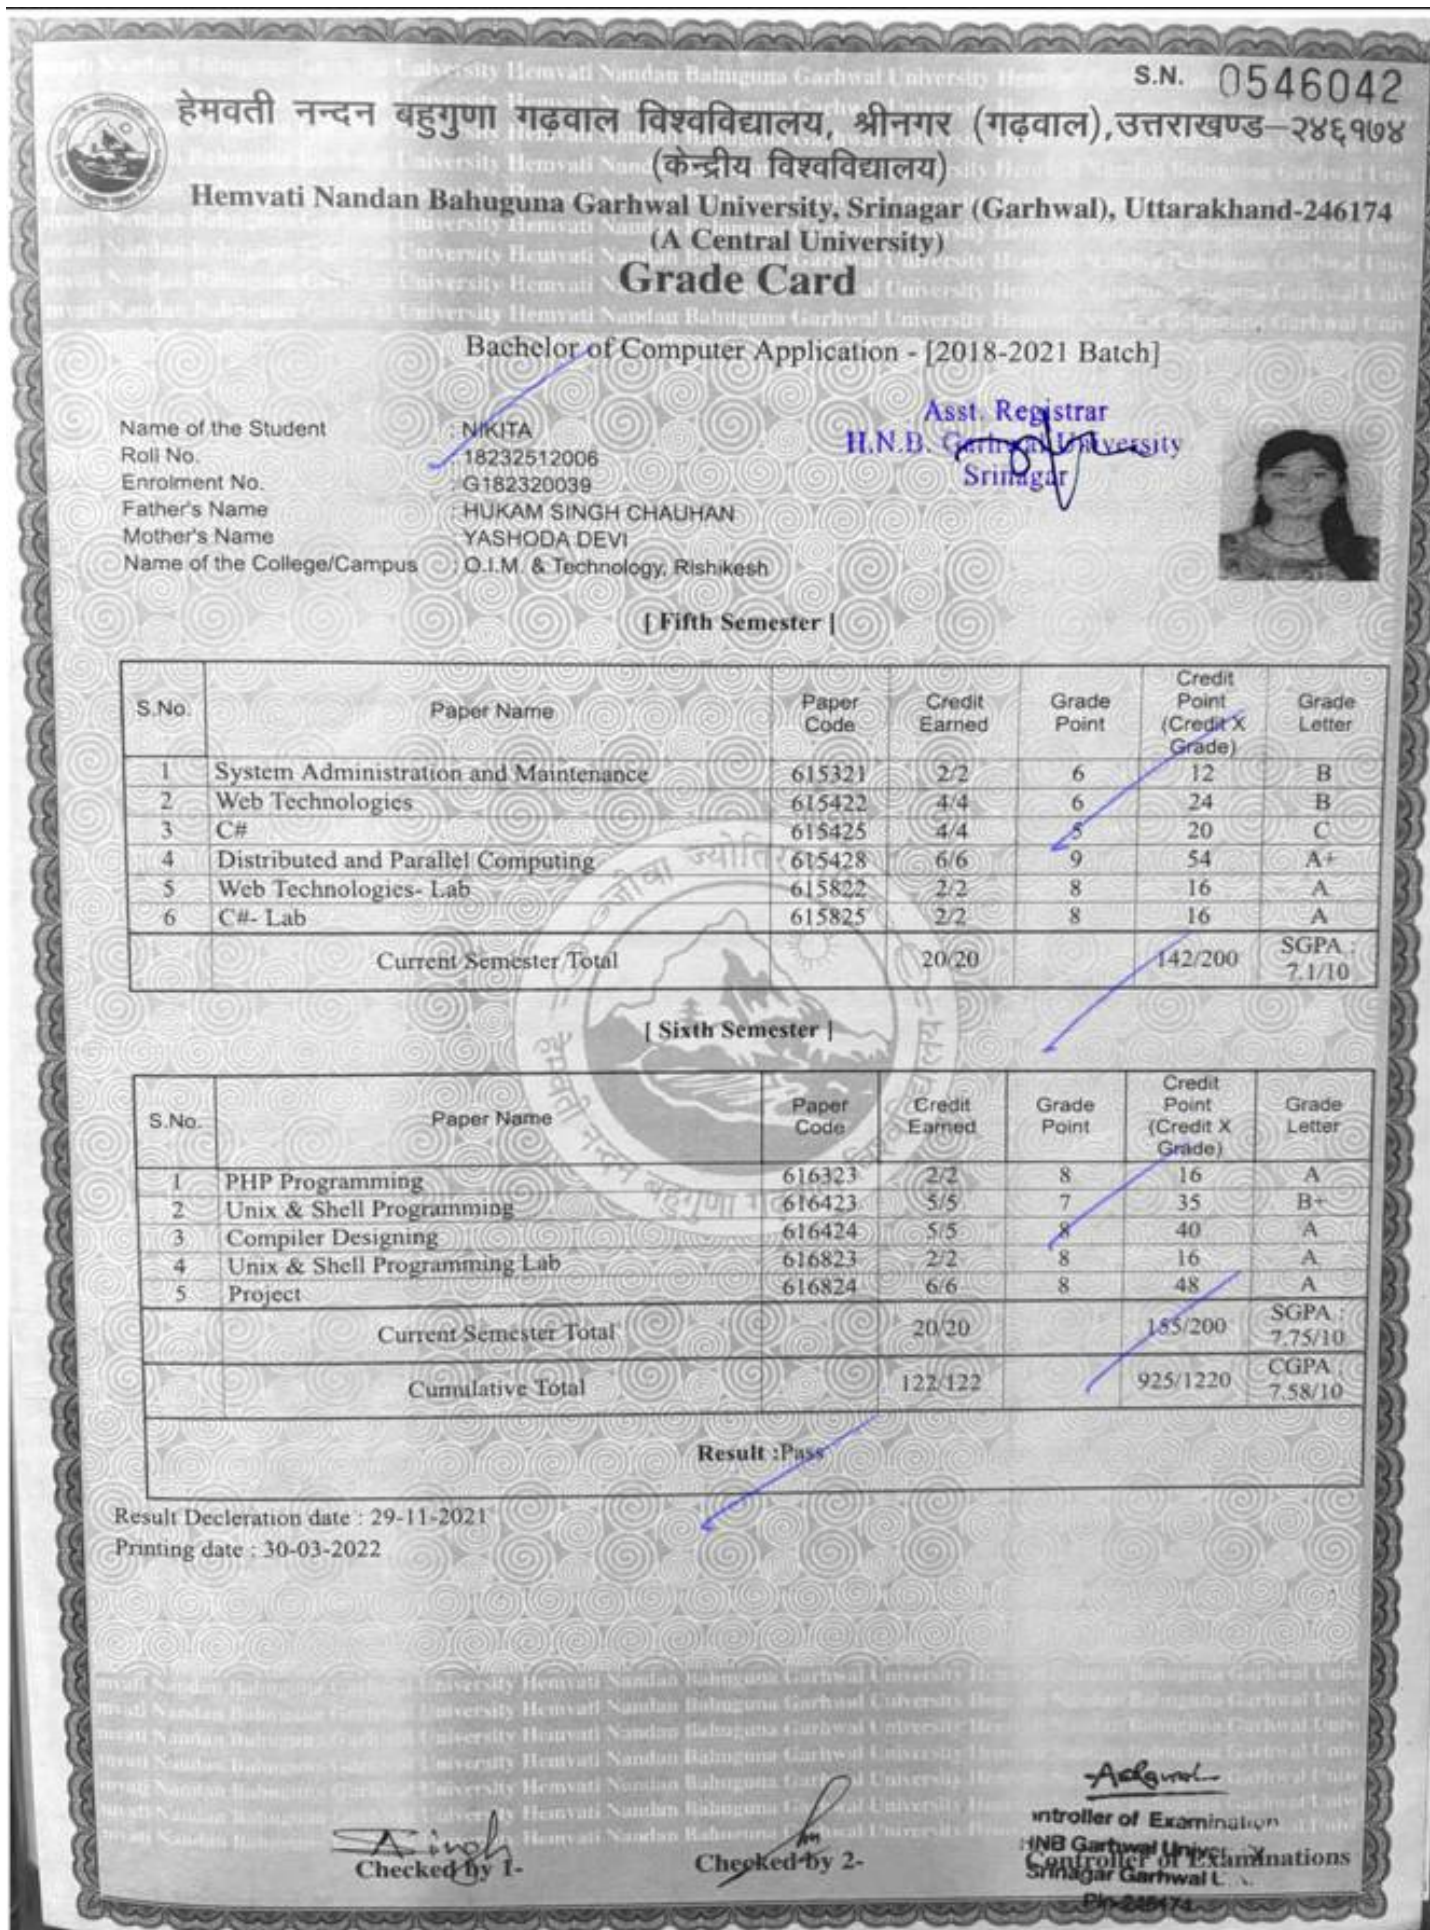 S.N. 0546042
हेमवती नन्दन बहुगुणा गढ़वाल विश्वविद्यालय, श्रीनगर (गढ़वाल),उत्तराखण्ड–२४६१७४
(केन्द्रीय विश्वविद्यालय)
Hemvati Nandan Bahuguna Garhwal University, Srinagar (Garhwal), Uttarakhand-246174
(A Central University)
Grade Card
Bachelor of Computer Application - [2018-2021 Batch]
Asst. Registrar
H.N.B. Garhwal University
Srinagar
Name of the Student : NIKITA
Roll No. : 18232512006
Enrolment No. : G182320039
Father's Name : HUKAM SINGH CHAUHAN
Mother's Name YASHODA DEVI
Name of the College/Campus : O.I.M. & Technology, Rishikesh
[ Fifth Semester ]
S.No. Paper Name Paper Code Credit Earned Grade Point Credit Point (Credit X Grade) Grade Letter
1 System Administration and Maintenance 615321 2/2 6 12 B
2 Web Technologies 615422 4/4 6 24 B
3 C# 615425 4/4 5 20 C
4 Distributed and Parallel Computing 615428 6/6 9 54 A+
5 Web Technologies- Lab 615822 2/2 8 16 A
6 C#- Lab 615825 2/2 8 16 A
Current Semester Total 20/20 142/200 SGPA : 7.1/10
[ Sixth Semester ]
S.No. Paper Name Paper Code Credit Earned Grade Point Credit Point (Credit X Grade) Grade Letter
1 PHP Programming 616323 2/2 8 16 A
2 Unix & Shell Programming 616423 5/5 7 35 B+
3 Compiler Designing 616424 5/5 8 40 A
4 Unix & Shell Programming Lab 616823 2/2 8 16 A
5 Project 616824 6/6 8 48 A
Current Semester Total 20/20 155/200 SGPA : 7.75/10
Cumulative Total 122/122 925/1220 CGPA : 7.58/10
Result :Pass
Result Decleration date : 29-11-2021
Printing date : 30-03-2022
Singh
Checked by 1-
Checked by 2-
ntroller of Examination
HNB Garhwal
Controller of Examinations
Srinagar Garhwal